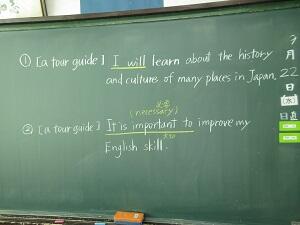 ① [a tour guide] I will learn about the history
and cultures of many places in Japan.
必要
(necessary)
② [a tour guide] It is important to improve my
大切
English skill.
月
22
日
(水)
日直